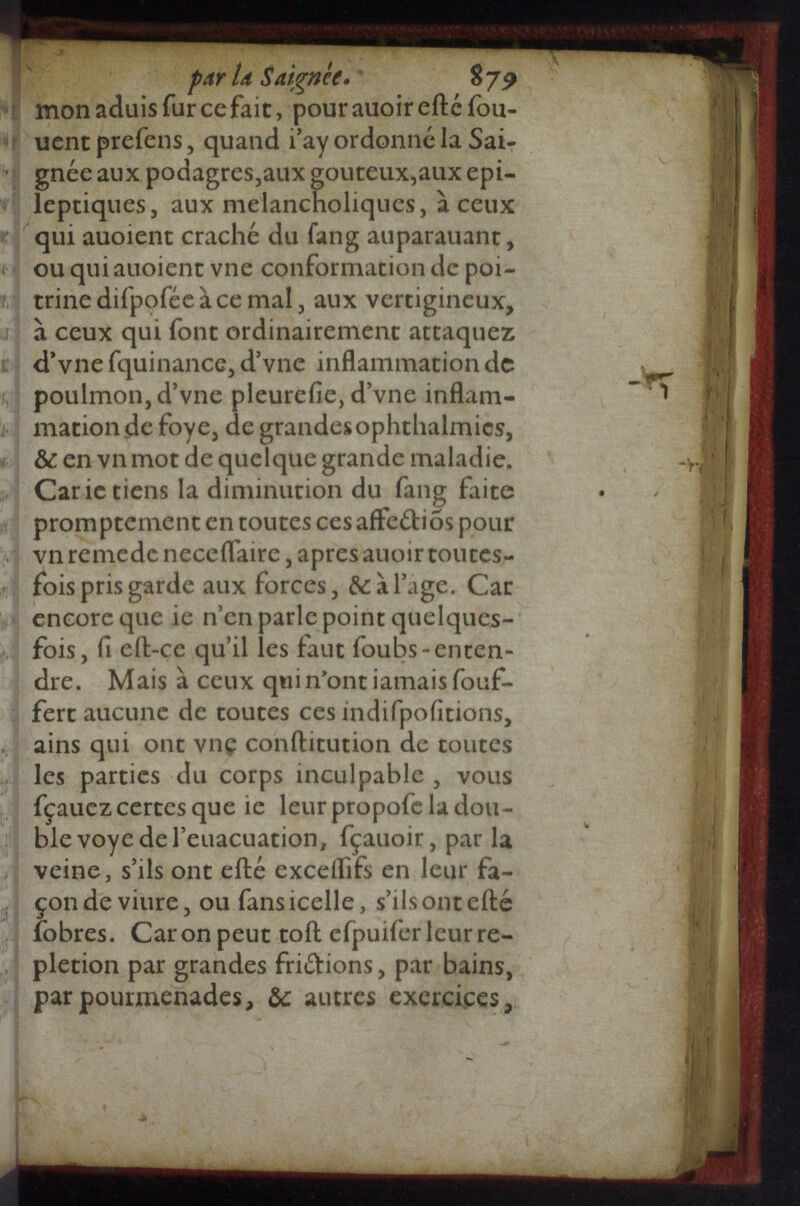 par la Saignée. 879
mon aduis ſur ce fait, pour auoir eſté ſou-
uent preſens, quand i'ay ordonné la Sai-
gnée aux podagres, aux gouteux, aux epi-
leptiques, aux melancholiques, à ceux
qui auoient craché du ſang auparauant,
ou qui auoient vne conformation de poi-
trine diſpoſée à ce mal, aux vertigineux,
à ceux qui ſont ordinairement attaquez
d'vne ſquinance, d'vne inflammation de
poulmon, d'vne pleureſie, d'vne inflam-
mation de foye, de grandes ophthalmies,
& en vn mot de quelque grande maladie.
Car ie tiens la diminution du ſang faite
promptement en toutes ces affectiõs pour
vn remede neceſſaire, apres auoir toutes-
fois pris garde aux forces, & à l'age. Car
encore que ie n'en parle point quelques-
fois, ſi eſt-ce qu'il les faut ſoubs-enten-
dre. Mais à ceux qui n'ont iamais ſouf-
fert aucune de toutes ces indiſpoſitions,
ains qui ont vne conſtitution de toutes
les parties du corps inculpable, vous
ſçauez certes que ie leur propoſe la dou-
ble voye de l'euacuation, ſçauoir, par la
veine, s'ils ont eſté exceſſifs en leur fa-
çon de viure, ou ſans icelle, s'ils ont eſté
ſobres. Car on peut toſt eſpuiſer leur re-
pletion par grandes frictions, par bains,
par pourmenades, & autres exercices,